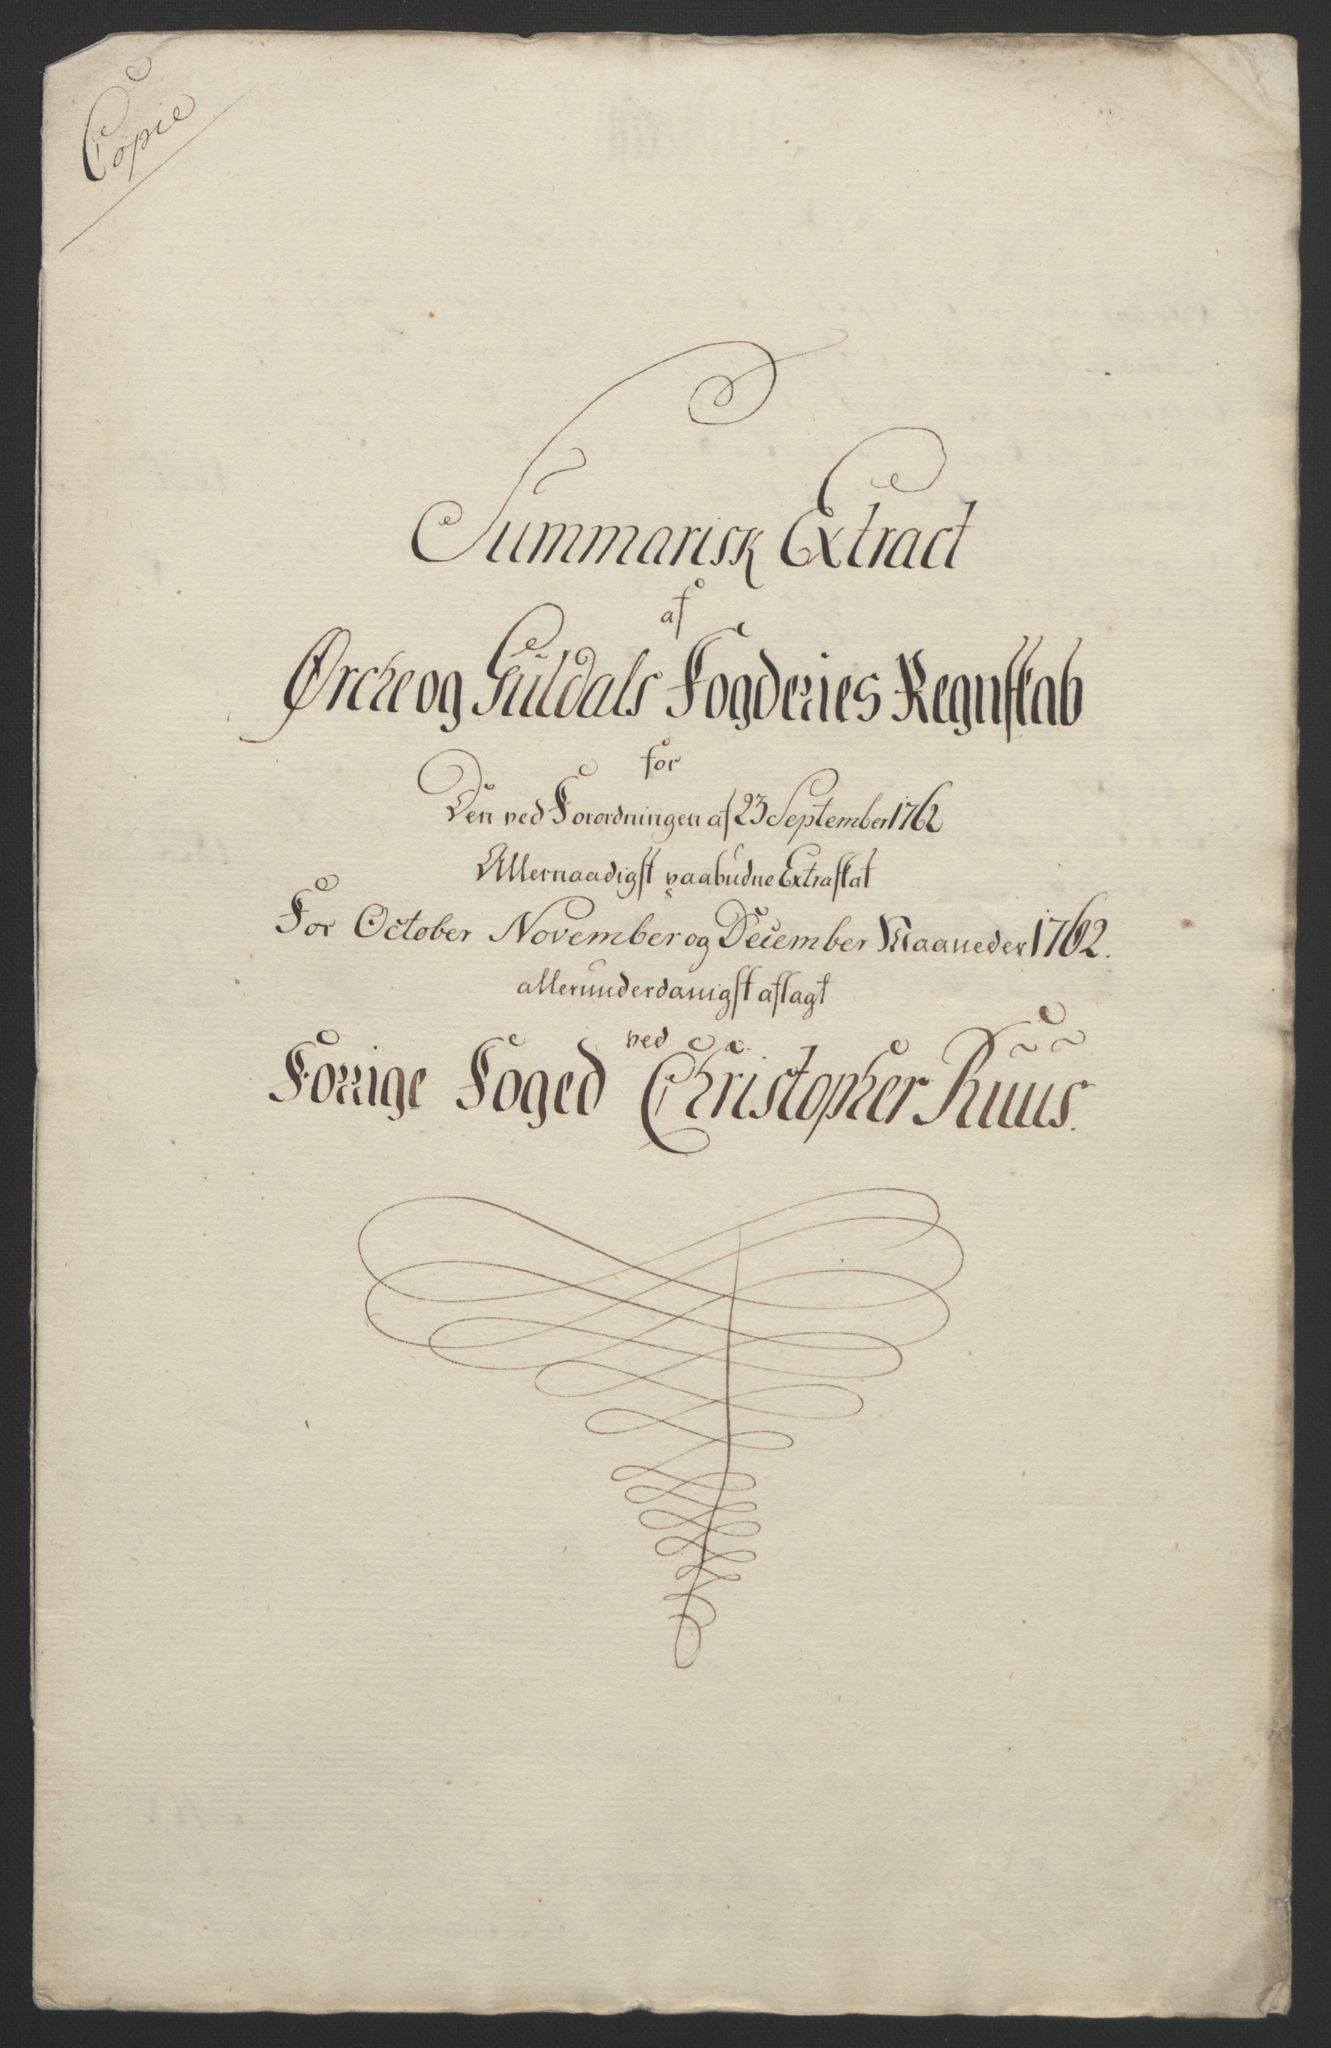 Copie
Summarisk Extract
af
Ørche og Guldals Fogderies Regnskab
for
Den ved Forordningen af 23 September 1762
Allernaadigst paabudne Extraskat
For October November og December Maaneder 1762.
allerunderdanigst aflagt
ved
Forrige Foged Christopher Ruus.